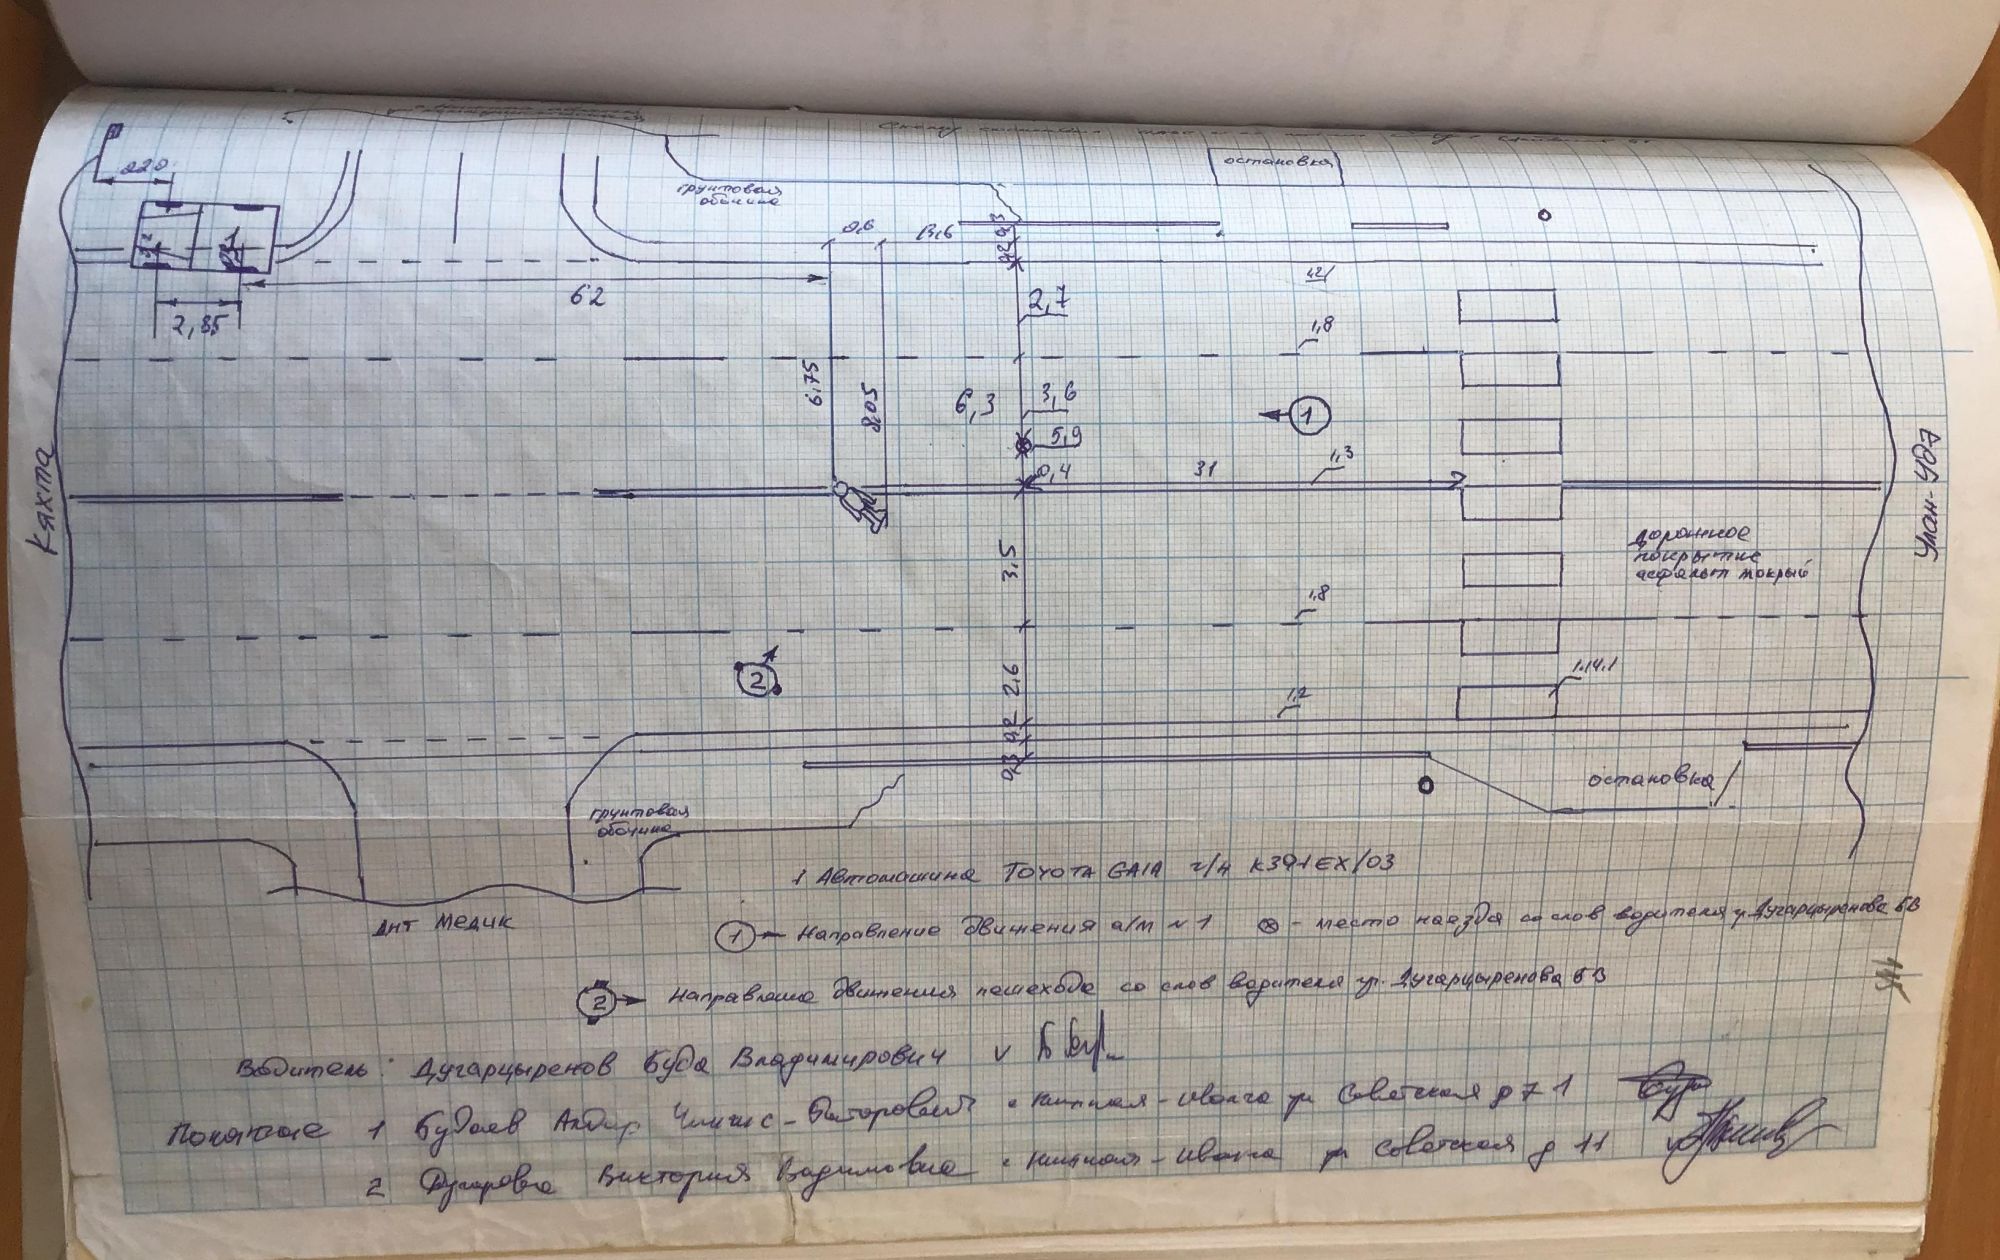 остановка
220
грунтовая
обочина
2,6
13,6
0,3
62
2,7
2,85
1,8
6,75
8,05
6,3
3,6
1
5,9
0,4
31
1,3
Кяхта
Улан-Удэ
дорожное
покрытие
асфальт мокрый
3,5
1,8
2
2,6
1.14.1
1.2
0,3
остановка
грунтовая
обочина
1 Автомашина TOYOTA GAIA г/н К391ЕХ/03
Ант Медик
1 - Направление движения а/м №1 ⊗ - место наезда со слов водителя гр. Дугарцыренова БВ
2 Направление движения пешехода со слов водителя гр. Дугарцыренова БВ
Водитель: Дугарцыренов Буда Владимирович
Понятые 1 Будаев Чингис-Баторович ул Советская д 71
2 Дугарова Виктория Вадимовна ул Советская д 11